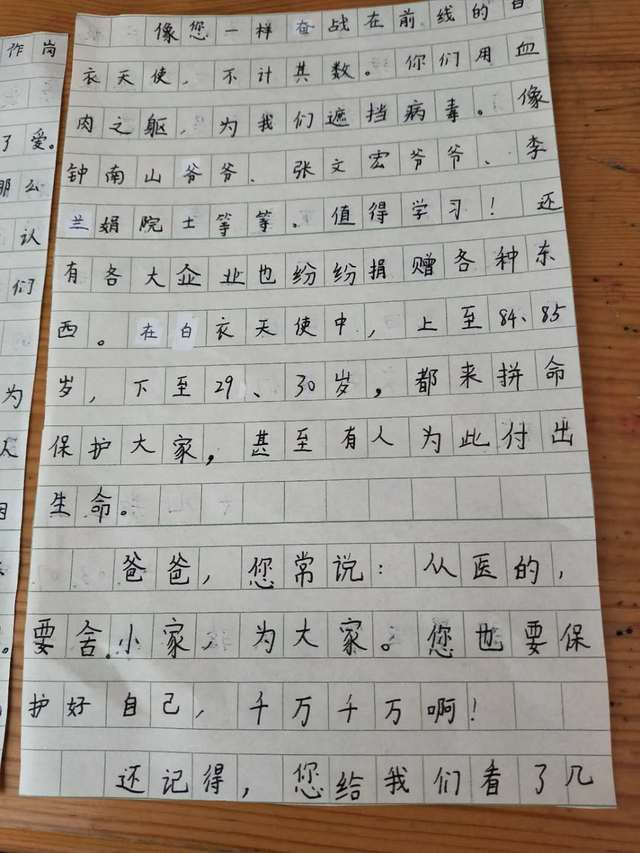 作岗
了爱。
那么
认
们
为
像您一样奋战在前线的白
衣天使，不计其数。你们用血
肉之躯，为我们遮挡病毒。像
钟南山爷爷、张文宏爷爷、李
兰娟院士等等。值得学习！还
有各大企业也纷纷捐赠各种东
西。在白衣天使中，上至84、85
岁，下至29、30岁，都来拼命
保护大家，甚至有人为此付出
生命。
爸爸，您常说：从医的，
要舍小家，为大家。您也要保
护好自己，千万千万啊！
还记得，您给我们看了几